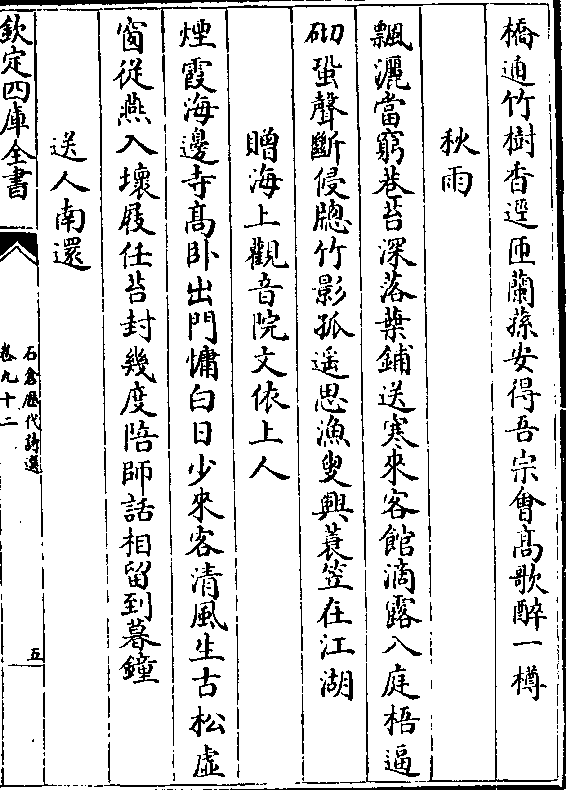 橋通竹樹香逕匝蘭蓀安得吾宗會髙歌醉一樽
秋雨
飄灑當窮巷苔深落葉鋪送寒來客館滴露入庭梧逼
砌蛩聲斷侵牕竹影孤遥思漁叟興蓑笠在江湖
贈海上觀音院文依上人
煙霞海邊寺髙卧出門慵白日少來客清風生古松虛
窗從燕入壞屐任苔封幾度陪師話相留到暮鐘
送人南還
欽定四庫全書
石倉歷代詩選
卷九十二
五